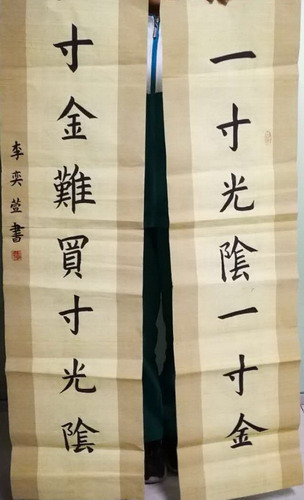 一寸光陰一寸金
寸金難買寸光陰
李奕萱書